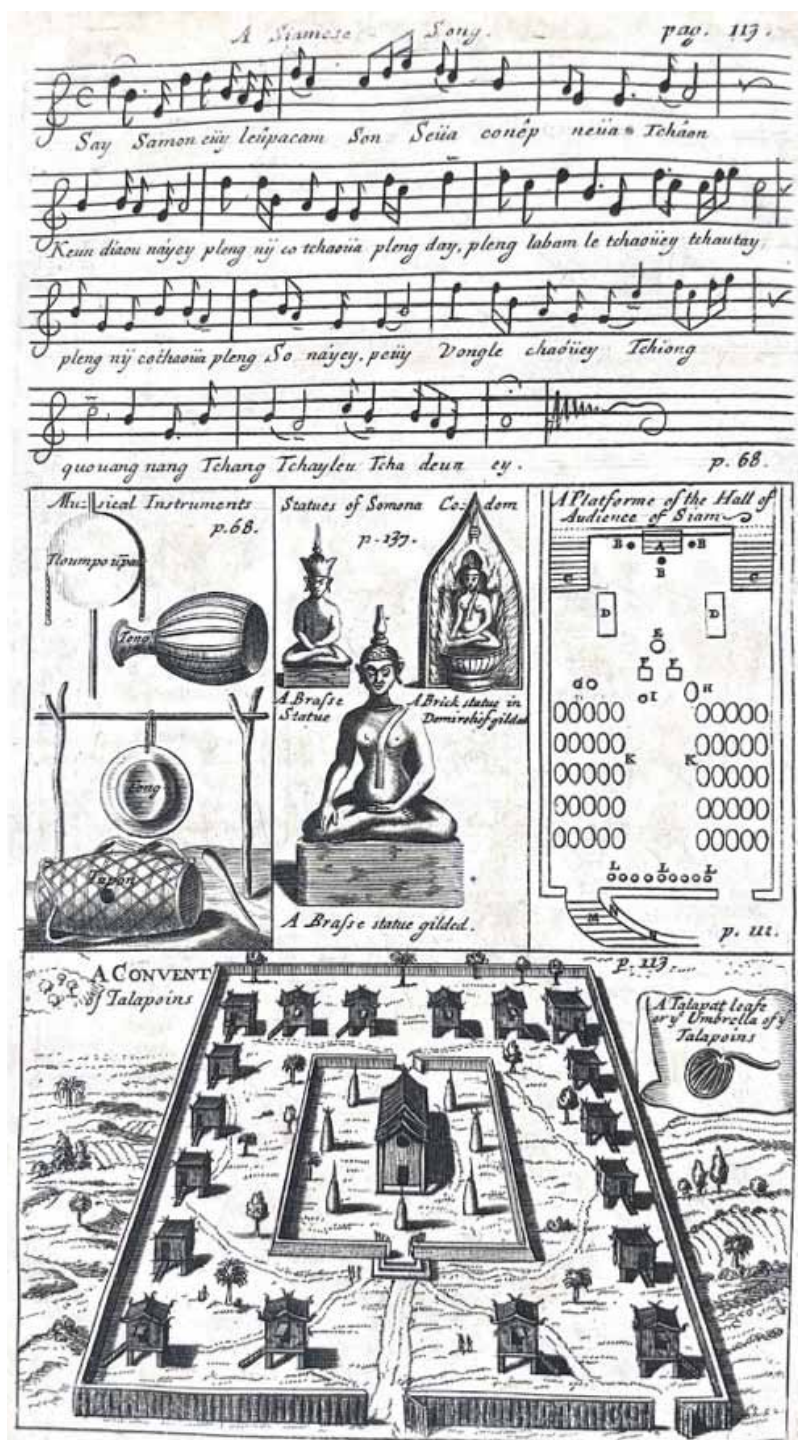 A Siamese Song. pag. 113.
Say Samon eüy leûpacam Son Seüa conêp neüa Tchâon
Keun diaou náyey pleng nÿ co tchaoüa pleng day, pleng labam le tchaoüey tchautay,
pleng nÿ cochaoüa pleng So náyey, peüy Vongle chaoüey Tchiong
quouang nang Tchang Tchayleu Tcha deun ey. p. 68.
Musical Instruments
p. 68.
Tlounpounpan
Tong
Cong
Tapon
Statues of Somona Codom
p. 137.
A Brasse
Statue
A Brick statue in
Demirelief gilded
A Brasse statue gilded.
A Platforme of the Hall of
Audience of Siam
B A B
B
C C
D D
E
F F
G I H
K K
L L L
M N N
p. 111.
A CONVENT
of Talapoins
p. 113
A Talapat leafe
or yͤ Umbrella of yͤ
Talapoins